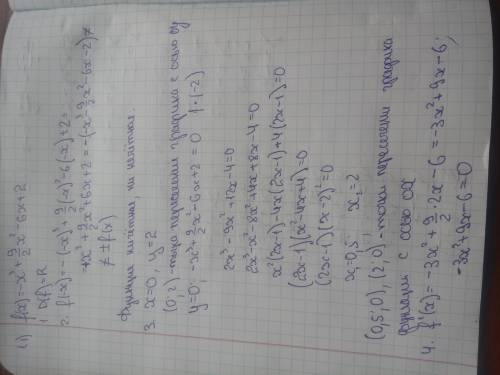 (1) f(x)=-x³+9/2x²-6x+2
1. D(f)=R
2. f(-x)=-(-x)³+9/2(-x)²-6(-x)+2=
=x³+9/2x²+6x+2=-(-x³-9/2x²-6x-2)≠
≠±f(x)
Функция ни чётная, ни нечётная.
3. x=0, y=2
(0; 2)-точка пересечения графика с осью Oy
y=0; -x³+9/2x²-6x+2=0 |·(-2)
2x³-9x²+12x-4=0
2x³-x²-8x²+4x+8x-4=0
x²(2x-1)-4x(2x-1)+4(2x-1)=0
(2x-1)(x²-4x+4)=0
(2x-1)(x-2)²=0
x₁=0,5 x₂=2
(0,5; 0), (2; 0)-точки пересечения графика
функции с осью OX
4. f'(x)=-3x²+9/2·2x-6=-3x²+9x-6;
-3x²+9x-6=0